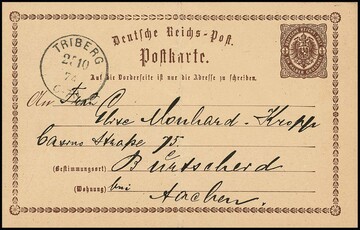 Deutsche Reichs-Post.
Postkarte.
TRIBERG
27 10
74
Auf die Vorderseite ist nur die Adresse zu schreiben.
An Frau
Monhard-Kropp
Straße 75.
Burtscheid
(Bestimmungsort)
(Wohnung) bei
Aachen.